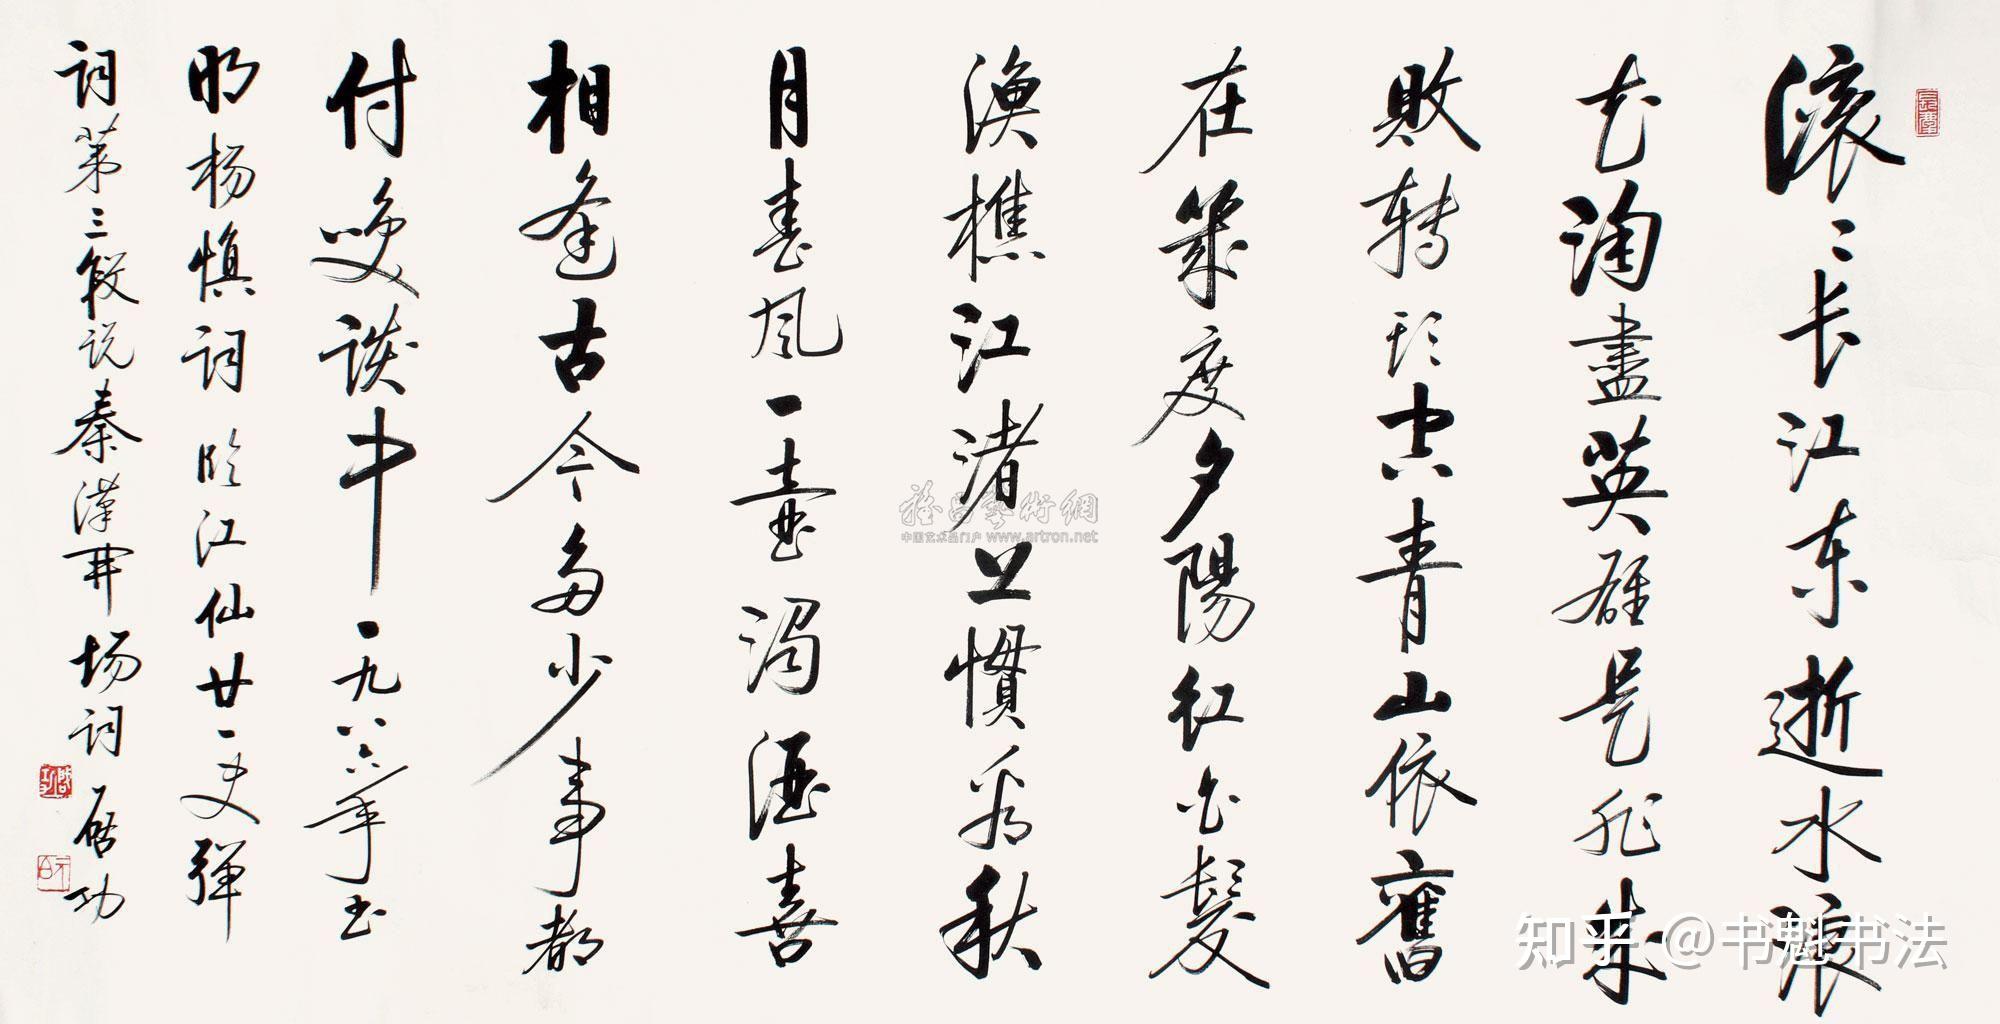 滚〻长江东逝水浪
花淘盡英雄是非成
敗转头空青山依舊
在幾度夕陽红白髮
渔樵江渚上慣看秋
月春风一壶濁酒喜
相逢古今多少事都
付笑谈中一九八六年书
明杨慎词临江仙廿一史弹
词第三段说秦漢開场词启功
雅昌藝術網
中国艺术品门户 www.artron.net
知乎 @书魁书法